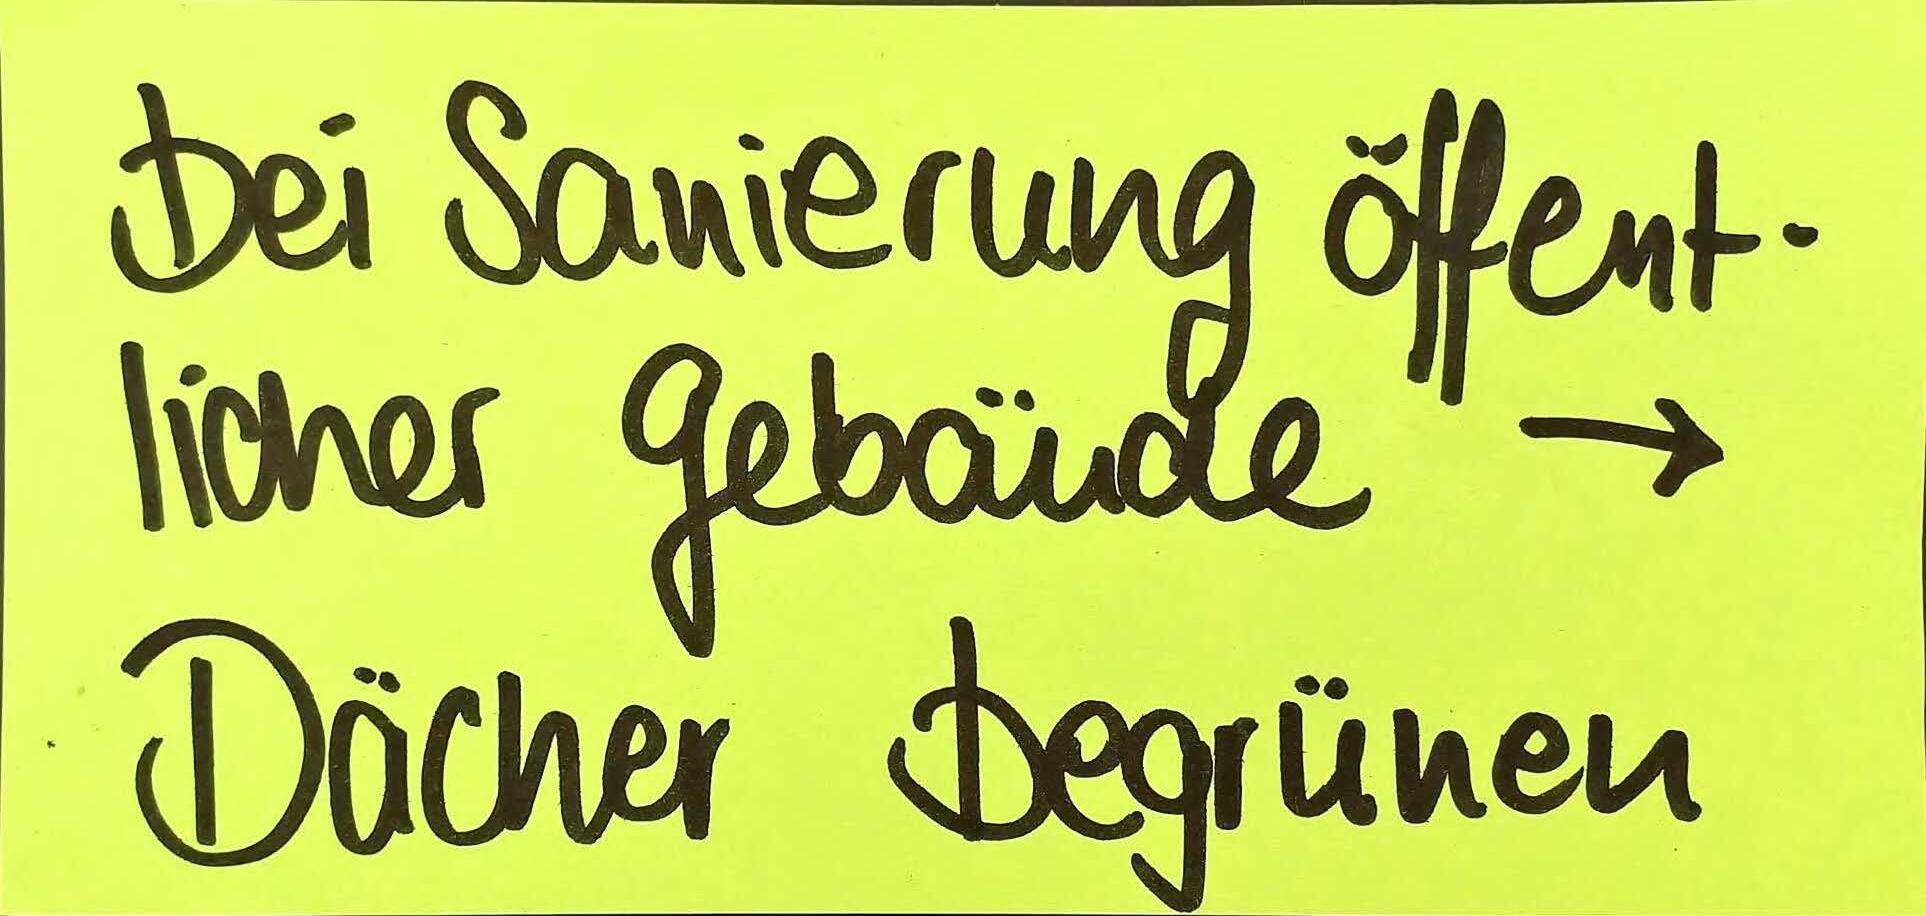 bei Sanierung öffent-
licher Gebäude →
Dächer begrünen